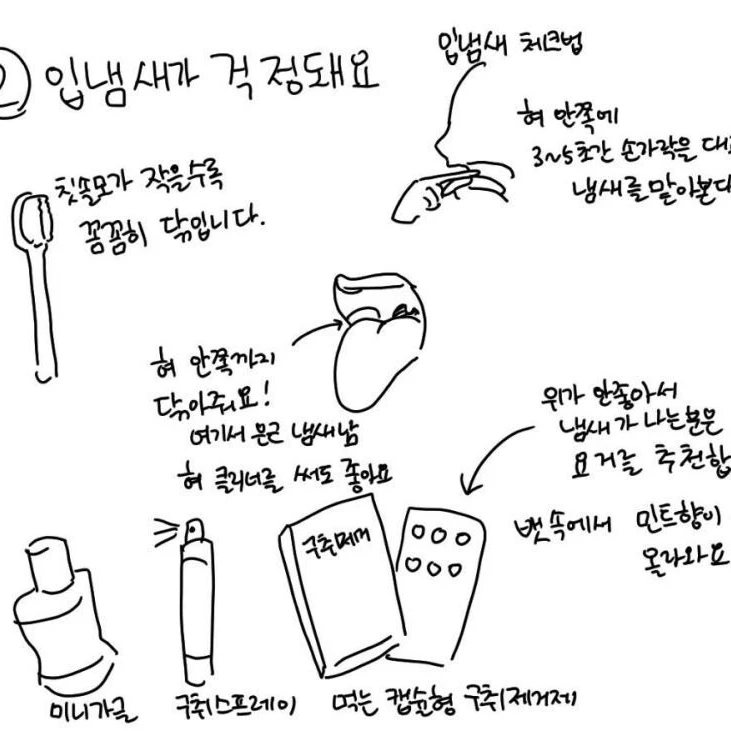 ② 입냄새가 걱정돼요
입냄새 체크법
혀 안쪽에
3~5초간 손가락을
냄새를 맡아본다
칫솔모가 작을수록
꼼꼼히 닦입니다.
혀 안쪽까지
닦아줘요!
여기서 은근 냄새남
혀 클리너를 써도 좋아요
위가 안좋아서
냄새가 나는분은
요거를 추천합
뱃속에서 민트향이
올라와요
구취제거
미니가글
구취스프레이
먹는 캡슐형 구취제거제